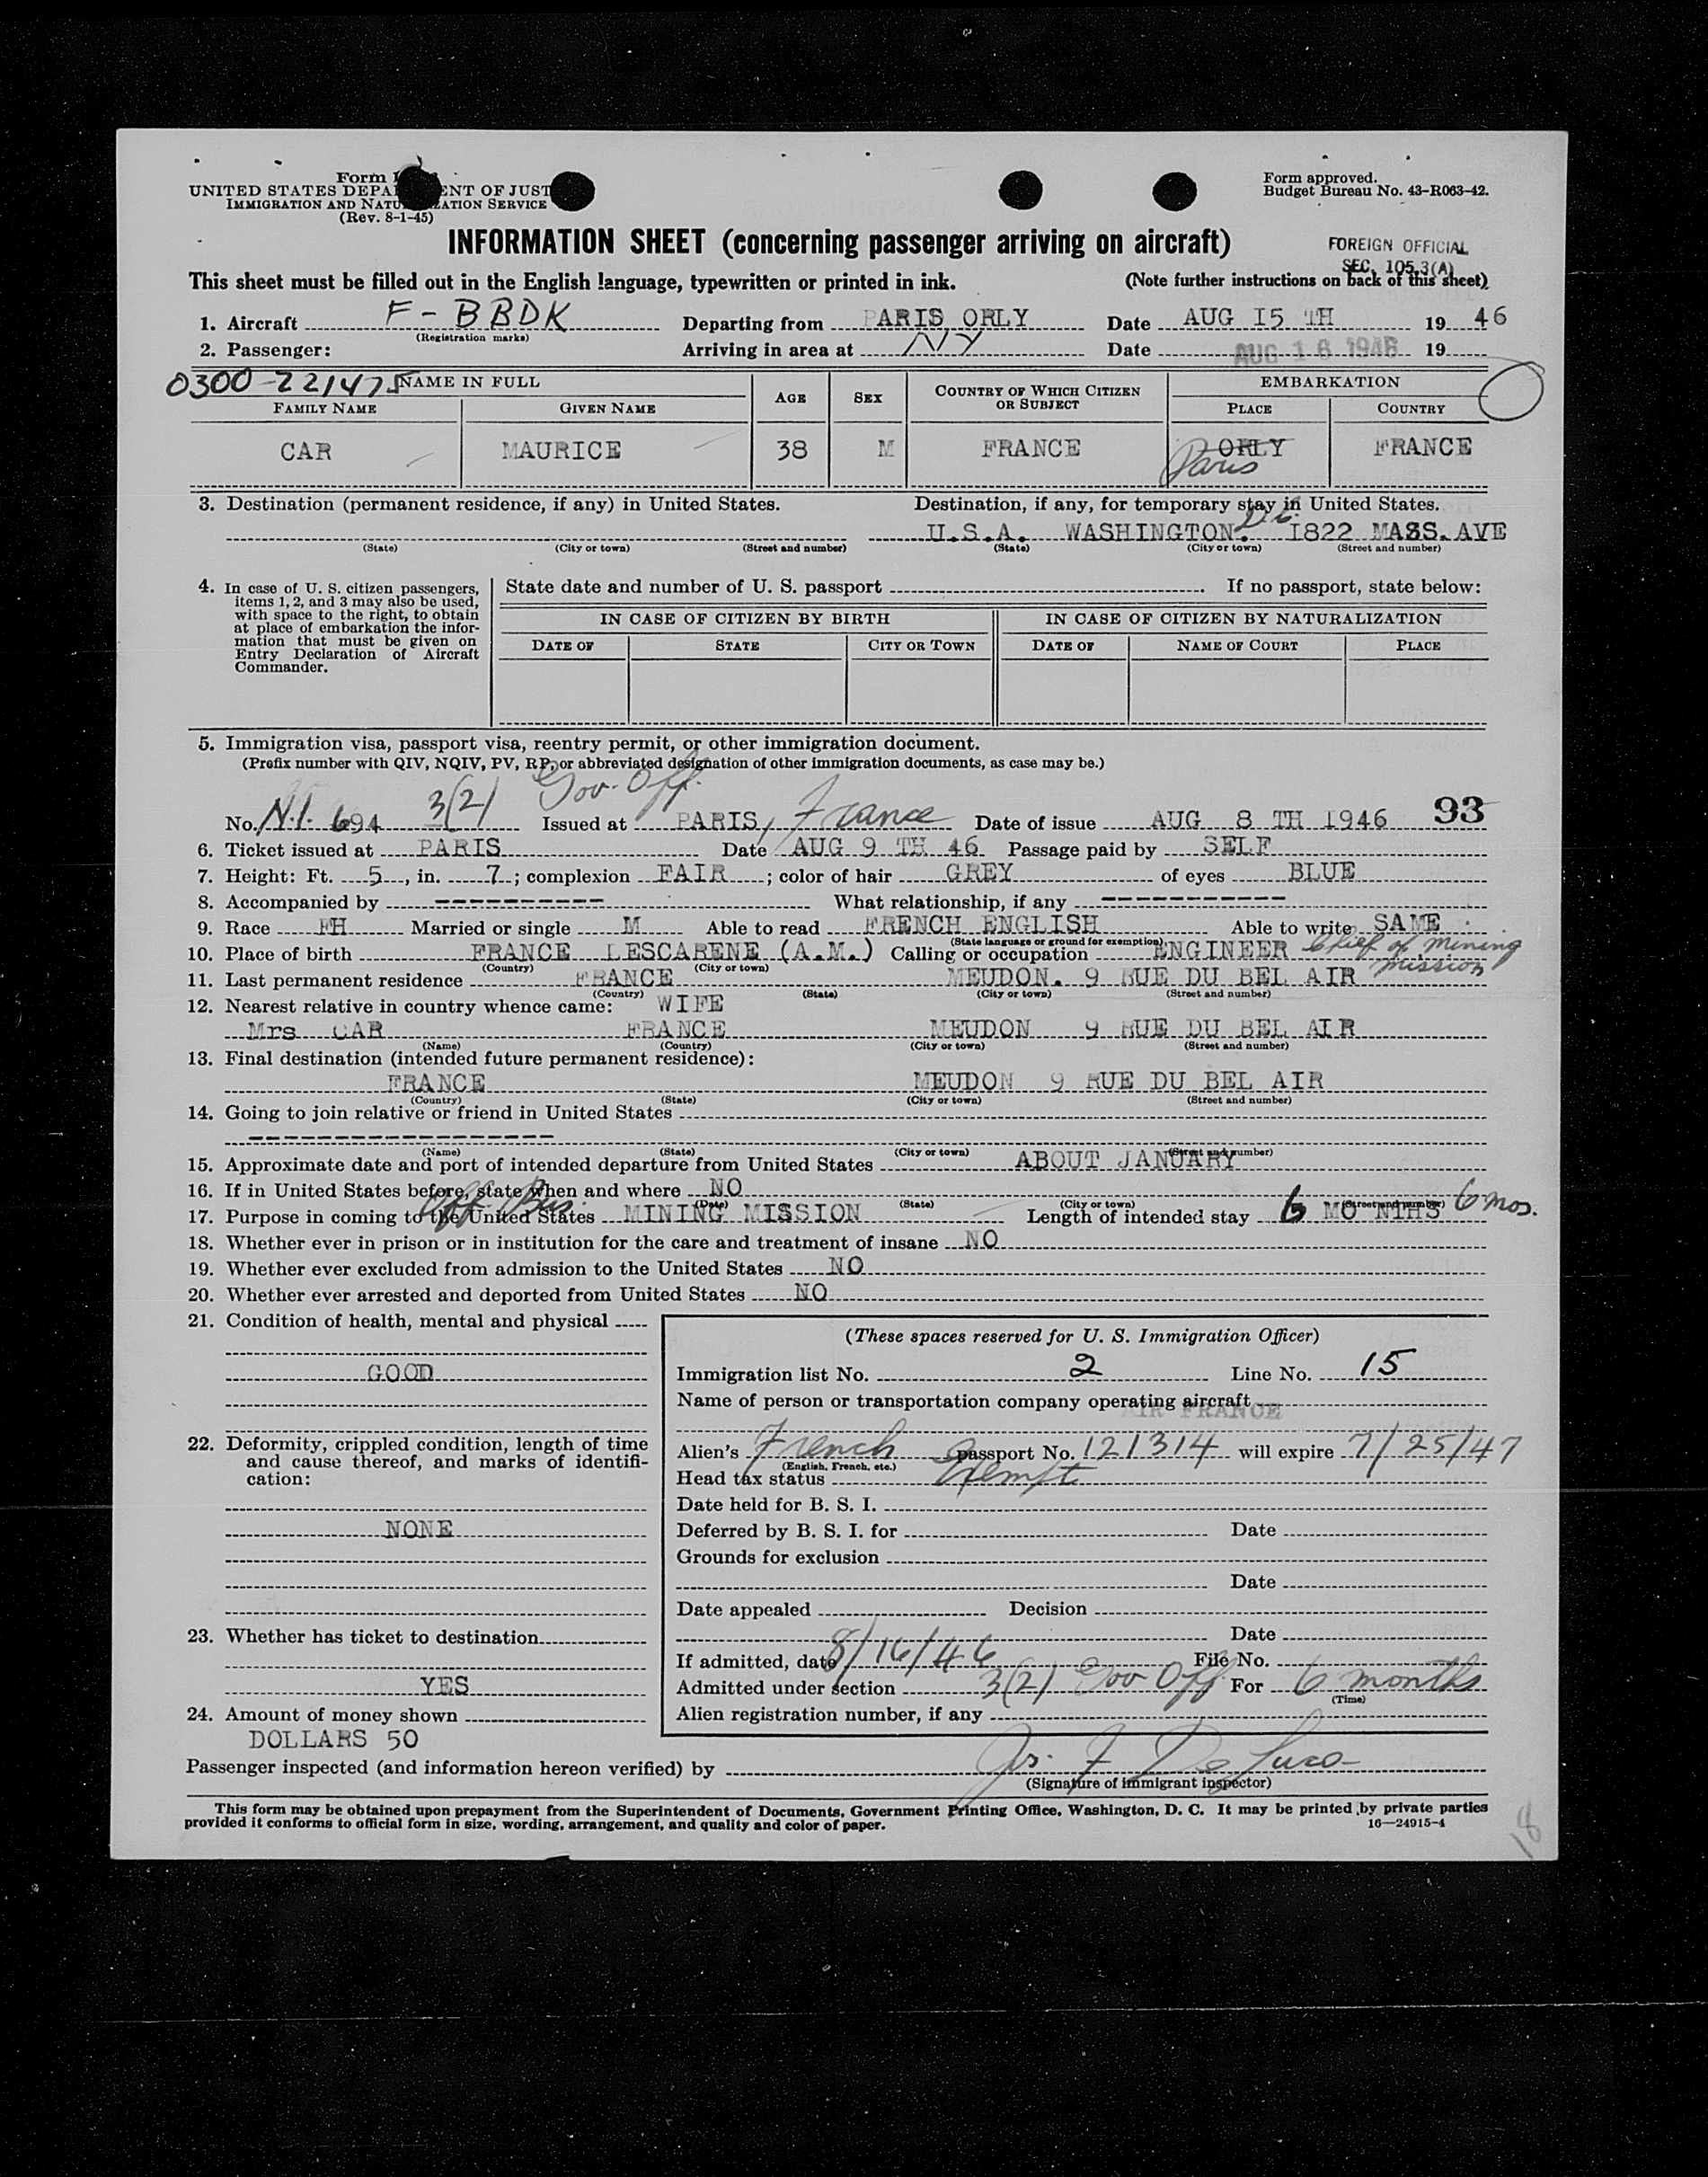 Form
UNITED STATES DEPA ENT OF JUST
IMMIGRATION AND NATU ATION SERVICE
(Rev. 8-1-45)
Form approved.
Budget Bureau No. 43-R063-42.
INFORMATION SHEET (concerning passenger arriving on aircraft)
FOREIGN OFFICIAL
SEC. 105.3(A)
This sheet must be filled out in the English language, typewritten or printed in ink. (Note further instructions on back of this sheet)
1. Aircraft F-BBDK Departing from PARIS ORLY Date AUG 15 TH 19 46
(Registration marks)
2. Passenger: Arriving in area at NY Date AUG 16 1946 19
0300-221475 NAME IN FULL AGE SEX COUNTRY OF WHICH CITIZEN OR SUBJECT EMBARKATION
FAMILY NAME GIVEN NAME PLACE COUNTRY
CAR MAURICE 38 M FRANCE ORLY FRANCE
Paris
3. Destination (permanent residence, if any) in United States. Destination, if any, for temporary stay in United States.
U.S.A. WASHINGTON. D.C. 1822 MASS. AVE
(State) (City or town) (Street and number) (State) (City or town) (Street and number)
4. In case of U. S. citizen passengers, items 1, 2, and 3 may also be used, with space to the right, to obtain at place of embarkation the information that must be given on Entry Declaration of Aircraft Commander.
State date and number of U. S. passport. If no passport, state below:
IN CASE OF CITIZEN BY BIRTH IN CASE OF CITIZEN BY NATURALIZATION
DATE OF STATE CITY OR TOWN DATE OF NAME OF COURT PLACE
5. Immigration visa, passport visa, reentry permit, or other immigration document.
(Prefix number with QIV, NQIV, PV, RP, or abbreviated designation of other immigration documents, as case may be.)
Gov. Off.
No. N.I. 694 3(2) Issued at PARIS, France Date of issue AUG 8 TH 1946 93
6. Ticket issued at PARIS Date AUG 9 TH 46 Passage paid by SELF
7. Height: Ft. 5, in. 7; complexion FAIR; color of hair GREY of eyes BLUE
8. Accompanied by ---------- What relationship, if any -----------
9. Race FH Married or single M Able to read FRENCH ENGLISH Able to write SAME
(State language or ground for exemption)
10. Place of birth FRANCE LESCARENE (A.M.) Calling or occupation ENGINEER Chief of Mining mission
(Country) (City or town)
11. Last permanent residence FRANCE MEUDON. 9 RUE DU BEL AIR
(Country) (State) (City or town) (Street and number)
12. Nearest relative in country whence came: WIFE
Mrs CAR FRANCE MEUDON 9 RUE DU BEL AIR
(Name) (Country) (City or town) (Street and number)
13. Final destination (intended future permanent residence):
FRANCE MEUDON 9 RUE DU BEL AIR
(Country) (State) (City or town) (Street and number)
14. Going to join relative or friend in United States
-----------------
(Name) (State) (City or town) (Street and number)
15. Approximate date and port of intended departure from United States ABOUT JANUARY
16. If in United States before, state when and where NO
(Date) (State) (City or town) (Street and number)
Off Bus.
17. Purpose in coming to the United States MINING MISSION Length of intended stay 6 MO NTHS 6 mos.
18. Whether ever in prison or in institution for the care and treatment of insane NO
19. Whether ever excluded from admission to the United States NO
20. Whether ever arrested and deported from United States NO
21. Condition of health, mental and physical
GOOD
22. Deformity, crippled condition, length of time and cause thereof, and marks of identification:
NONE
23. Whether has ticket to destination
YES
24. Amount of money shown
DOLLARS 50
(These spaces reserved for U. S. Immigration Officer)
Immigration list No. 2 Line No. 15
Name of person or transportation company operating aircraft
AIR FRANCE
Alien's French passport No. 121314 will expire 7/25/47
(English, French, etc.)
Head tax status Exempt
Date held for B. S. I.
Deferred by B. S. I. for Date
Grounds for exclusion
Date
Date appealed Decision
Date
If admitted, date 8/16/46 File No.
Admitted under section 3(2) Gov Off. For 6 months
(Time)
Alien registration number, if any
Passenger inspected (and information hereon verified) by Jos. F. De Luca
(Signature of immigrant inspector)
This form may be obtained upon prepayment from the Superintendent of Documents, Government Printing Office, Washington, D. C. It may be printed by private parties
provided it conforms to official form in size, wording, arrangement, and quality and color of paper. 16—24915-4
18